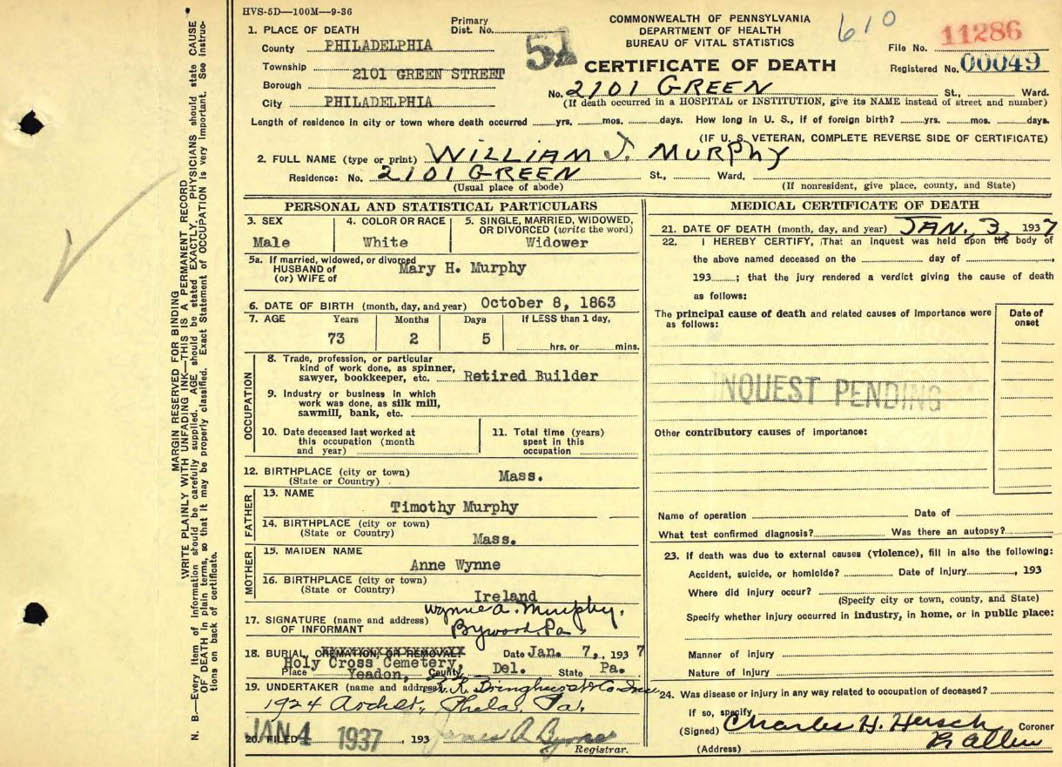 HVS-5D—100M—9-36
1. PLACE OF DEATH
County PHILADELPHIA
Township 2101 GREEN STREET
Borough
City PHILADELPHIA
Primary
Dist. No.
51
COMMONWEALTH OF PENNSYLVANIA
DEPARTMENT OF HEALTH
BUREAU OF VITAL STATISTICS
CERTIFICATE OF DEATH
610
File No. 11286
Registered No. 00049
No. 2101 GREEN St., Ward.
(If death occurred in a HOSPITAL or INSTITUTION, give its NAME instead of street and number)
Length of residence in city or town where death occurred yrs. mos. days. How long in U. S., if of foreign birth? yrs. mos. days.
(IF U. S. VETERAN, COMPLETE REVERSE SIDE OF CERTIFICATE)
2. FULL NAME (type or print) WILLIAM J. MURPHY
Residence: No. 2101 GREEN St., Ward,
(Usual place of abode) (If nonresident, give place, county, and State)
PERSONAL AND STATISTICAL PARTICULARS
3. SEX
Male
4. COLOR OR RACE
White
5. SINGLE, MARRIED, WIDOWED,
OR DIVORCED (write the word)
Widower
5a. If married, widowed, or divorced
HUSBAND of
(or) WIFE of
Mary H. Murphy
6. DATE OF BIRTH (month, day, and year) October 8, 1863
7. AGE Years Months Days If LESS than 1 day,
73 2 5 hrs. or mins.
OCCUPATION
8. Trade, profession, or particular
kind of work done, as spinner,
sawyer, bookkeeper, etc. Retired Builder
9. Industry or business in which
work was done, as silk mill,
sawmill, bank, etc.
10. Date deceased last worked at
this occupation (month
and year)
11. Total time (years)
spent in this
occupation
12. BIRTHPLACE (city or town)
(State or Country) Mass.
FATHER
13. NAME
Timothy Murphy
14. BIRTHPLACE (city or town)
(State or Country) Mass.
MOTHER
15. MAIDEN NAME
Anne Wynne
16. BIRTHPLACE (city or town)
(State or Country) Ireland
17. SIGNATURE (name and address)
OF INFORMANT
Wynne A. Murphy,
Bywood, Pa
18. BURIAL, CREMATION, OR REMOVAL Date Jan. 7, 1937
Holy Cross Cemetery,
Place Yeadon, County Del. State Pa.
19. UNDERTAKER (name and address)
1924 Arch St., Phila, Pa.
20. FILED JAN 4 1937, 193
James A Byrne
Registrar.
MEDICAL CERTIFICATE OF DEATH
21. DATE OF DEATH (month, day, and year) JAN. 3, 1937
22. I HEREBY CERTIFY, That an inquest was held upon the body of
the above named deceased on the day of ,
193 ; that the jury rendered a verdict giving the cause of death
as follows:
The principal cause of death and related causes of importance were
as follows:
Date of
onset
INQUEST PENDING
Other contributory causes of importance:
Name of operation Date of
What test confirmed diagnosis? Was there an autopsy?
23. If death was due to external causes (violence), fill in also the following:
Accident, suicide, or homicide? Date of injury , 193
Where did injury occur?
(Specify city or town, county, and State)
Specify whether injury occurred in industry, in home, or in public place:
Manner of injury
Nature of injury
24. Was disease or injury in any way related to occupation of deceased?
If so, specify
(Signed) Charles H. Hersch Coroner
(Address)
MARGIN RESERVED FOR BINDING
WRITE PLAINLY WITH UNFADING INK—THIS IS A PERMANENT RECORD
N. B.—Every item of information should be carefully supplied. AGE should be stated EXACTLY. PHYSICIANS should state CAUSE
OF DEATH in plain terms, so that it may be properly classified. Exact Statement of OCCUPATION is very important. See Instruc-
tions on back of certificate.